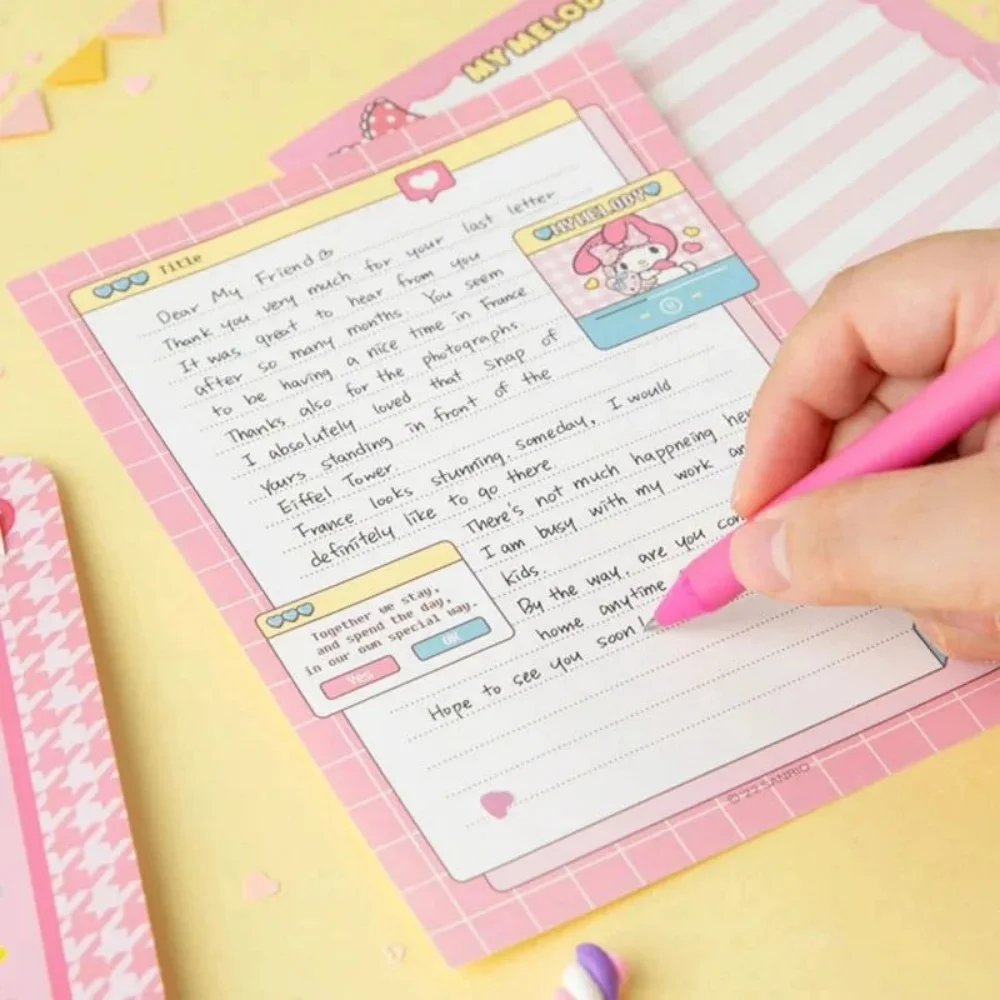 MY MELODY
Title
Dear My Friend
Thank you very much for your last letter
It was great to hear from you
after so many months. You seem
to be having a nice time in France
Thanks also for the photographs.
I absolutely loved that snap of
yours standing in front of the
Eiffel Tower.
France looks stunning. someday, I would
definitely like to go there
There's not much happneing
I am busy with my work
kids.
By the way, are you
home anytime
Hope to see you soon!
MY MELODY
Together we stay,
and spend the day,
in our own special way.
Yes
©'22 SANRIO